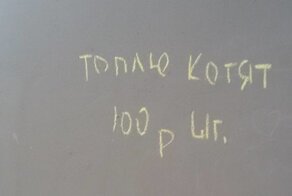 ТОПЛЮ КОТЯТ
100 р шт.